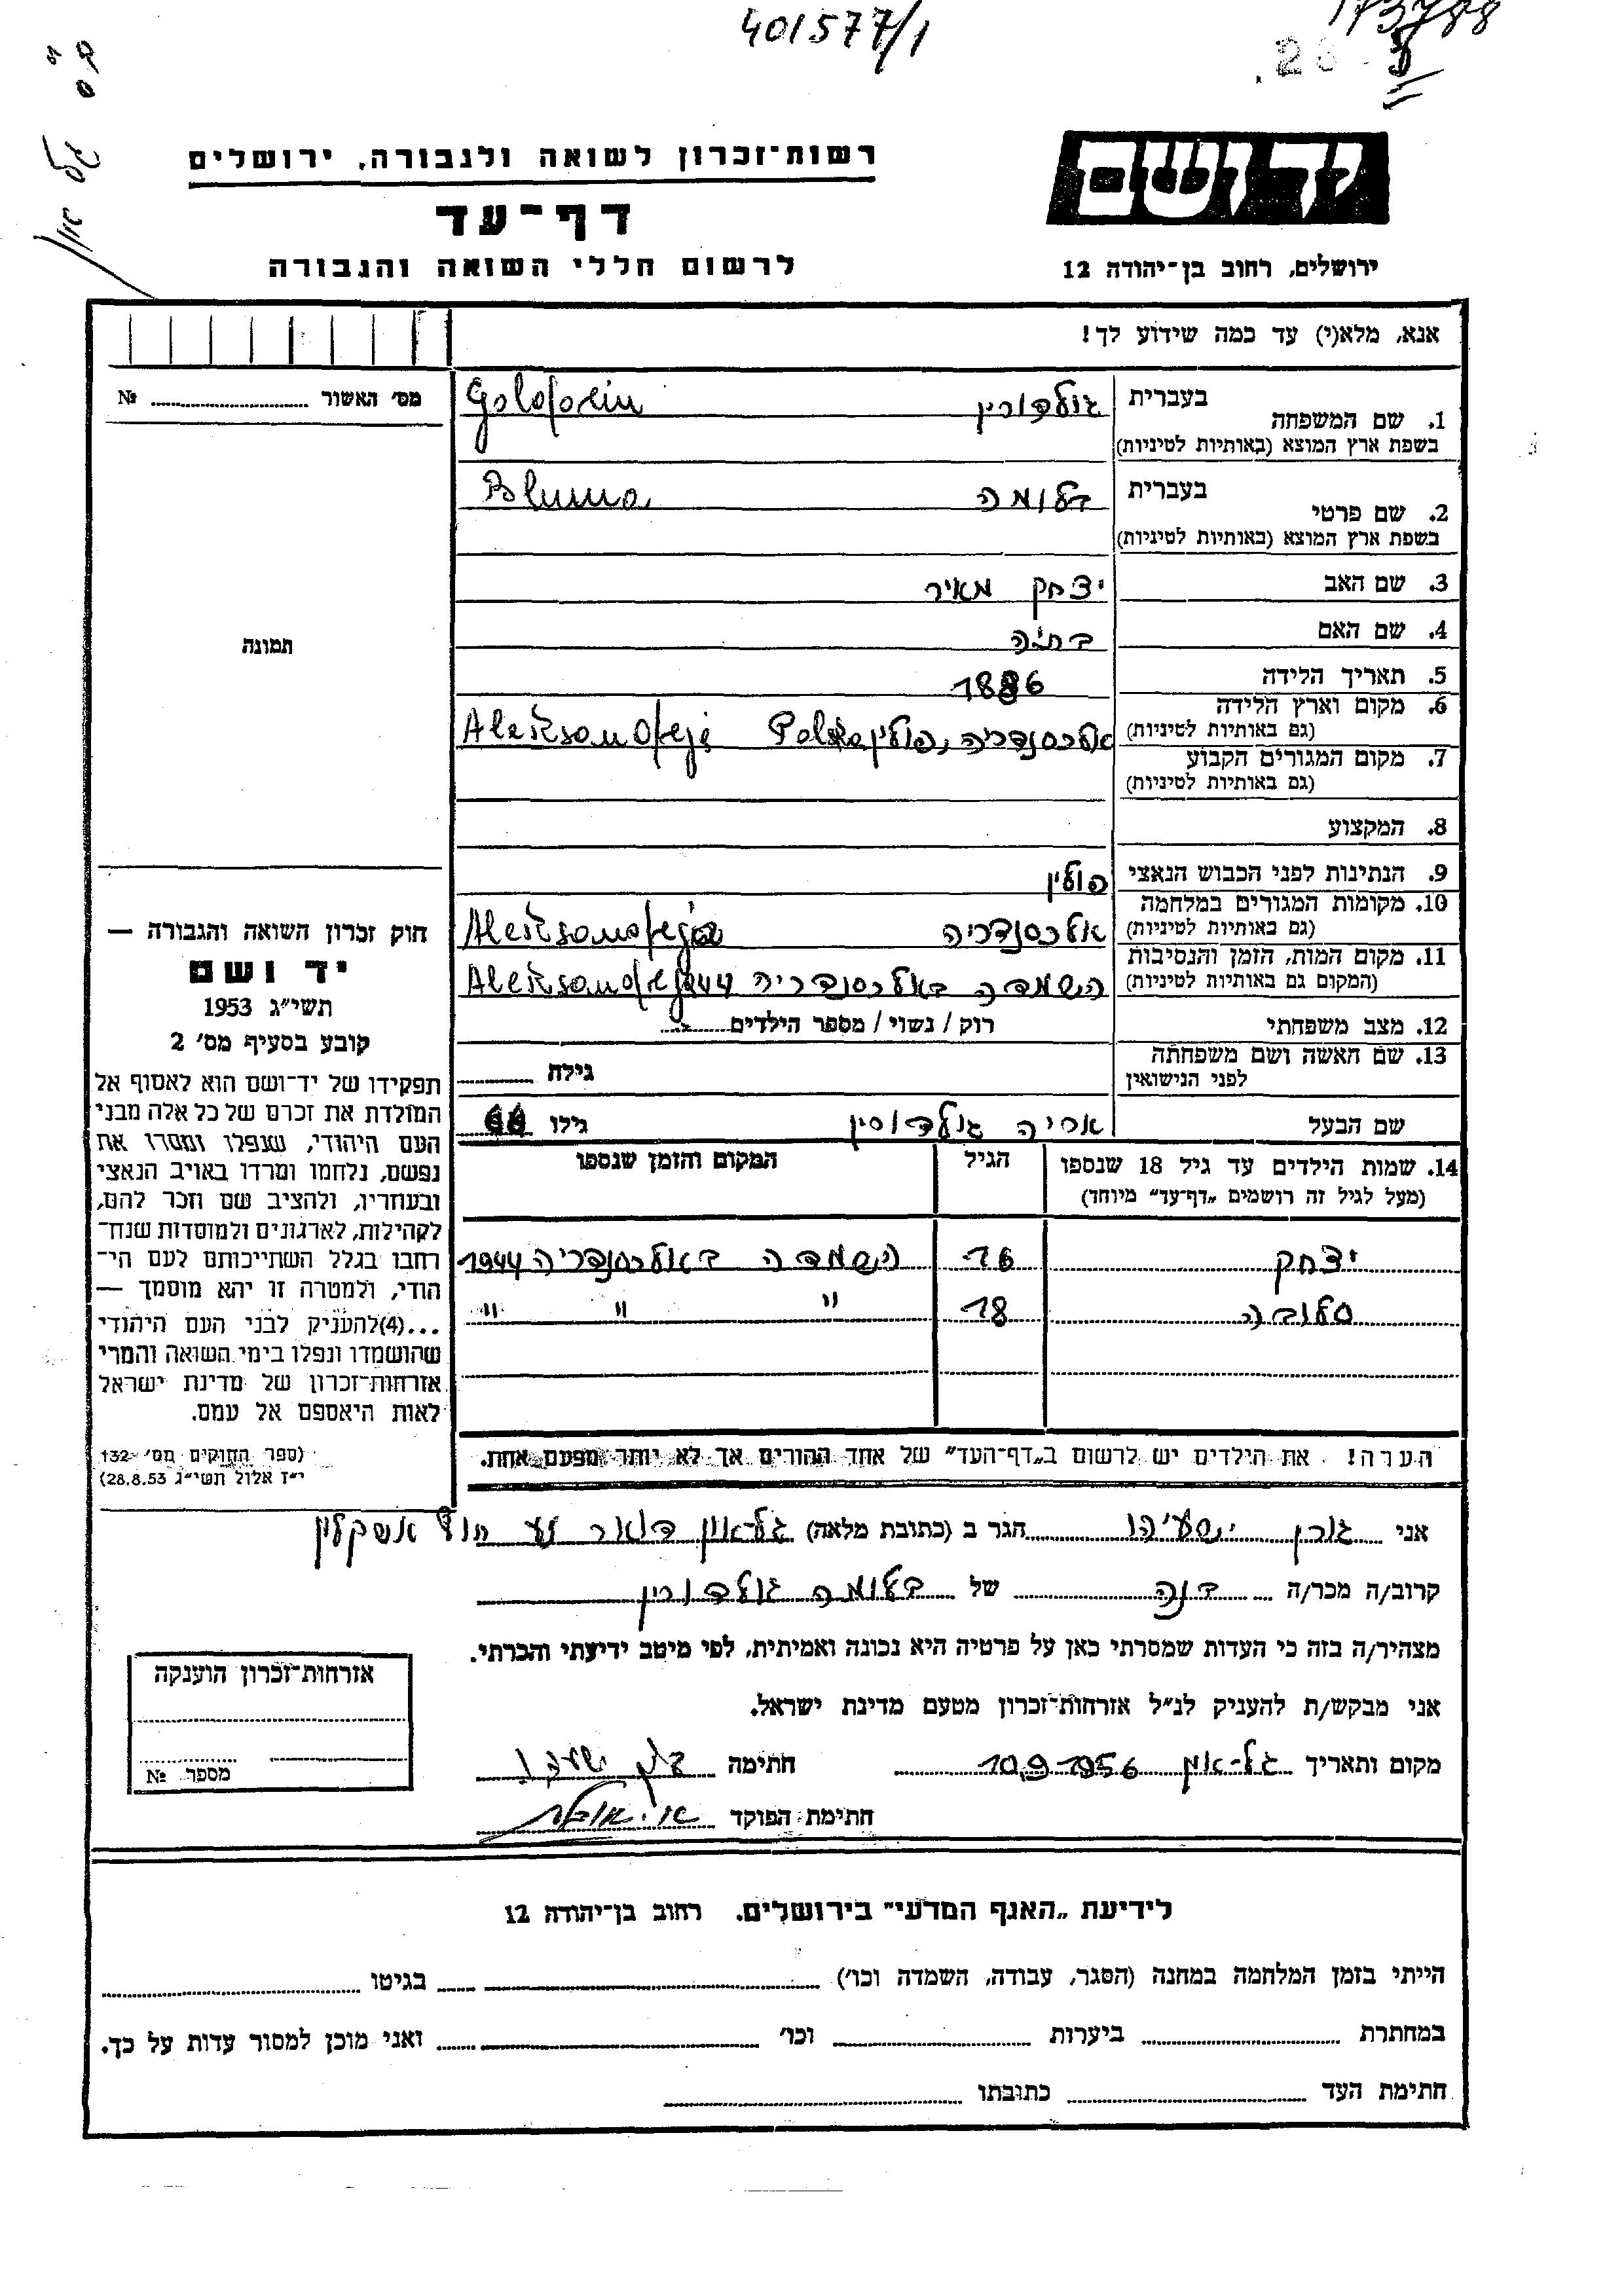 401577/1
173788
יד ושם
רשות־זכרון לשואה ולגבורה, ירושלים
דף־עד
לרשום חללי השואה והגבורה
ירושלים, רחוב בן־יהודה 12
אנא, מלא(י) עד כמה שידוע לך!
מס׳ האשור № 
1. שם המשפחה בעברית גולדורין Goldorin
בשפת ארץ המוצא (באותיות לטיניות)
2. שם פרטי בעברית בלומה Bluma
בשפת ארץ המוצא (באותיות לטיניות)
3. שם האב יצחק מאיר
4. שם האם
תמונה
5. תאריך הלידה 1886
6. מקום וארץ הלידה אלכסנדריה, פולין Polska Aleksandreja
(גם באותיות לטיניות)
7. מקום המגורים הקבוע
(גם באותיות לטיניות)
8. המקצוע
9. הנתינות לפני הכבוש הנאצי פולין
10. מקומות המגורים במלחמה אלכסנדריה Aleksandreja
(גם באותיות לטיניות)
11. מקום המות, הזמן והנסיבות השמדה באלכסנדריה 944 Aleksandreja
(המקום גם באותיות לטיניות)
12. מצב משפחתי רוק / נשוי / מספר הילדים
13. שם האשה ושם משפחתה
לפני הנישואין גילה
שם הבעל אריה גולדורין גילו
14. שמות הילדים עד גיל 18 שנספו הגיל המקום והזמן שנספו
(מעל לגיל זה רושמים „דף־עד״ מיוחד)
יצחק 16 השמדה באלכסנדריה 1944
סלובה 18 " " "
הערה! את הילדים יש לרשום ב„דף־העד״ של אחד ההורים אך לא יותר מפעם אחת.
חוק זכרון השואה והגבורה —
יד ושם
תשי״ג 1953
קובע בסעיף מס׳ 2
תפקידו של יד־ושם הוא לאסוף אל
המולדת את זכרם של כל אלה מבני
העם היהודי, שנפלו ומסרו את
נפשם, נלחמו ומרדו באויב הנאצי
ובעוזריו, ולהציב שם וזכר להם,
לקהילות, לארגונים ולמוסדות שנח־
רבו בגלל השתייכותם לעם הי־
הודי, ולמטרה זו יהא מוסמך —
...(4)להעניק לבני העם היהודי
שהושמדו ונפלו בימי השואה והמרי
אזרחות־זכרון של מדינת ישראל
לאות היאספם אל עמם.
(ספר החוקים מס׳ 132
י״ז אלול תשי״ג 28.8.53)
אני גורן ישעיהו הגר ב (כתובת מלאה) גל־און דואר נע חוף אשקלון
קרוב/ה מכר/ה בנה של בלומה גולדורין
מצהיר/ה בזה כי העדות שמסרתי כאן על פרטיה היא נכונה ואמיתית, לפי מיטב ידיעתי והכרתי.
אני מבקש/ת להעניק לנ״ל אזרחות־זכרון מטעם מדינת ישראל.
מקום ותאריך גל־און 10.9.1956 חתימה
חתימת הפוקד
אזרחות־זכרון הוענקה
מספר №
לידיעת „האגף המדעי״ בירושלים. רחוב בן־יהודה 12
הייתי בזמן המלחמה במחנה (הסגר, עבודה, השמדה וכו׳) בגיטו
במחתרת ביערות וכו׳ ואני מוכן למסור עדות על כך.
חתימת העד כתובתו